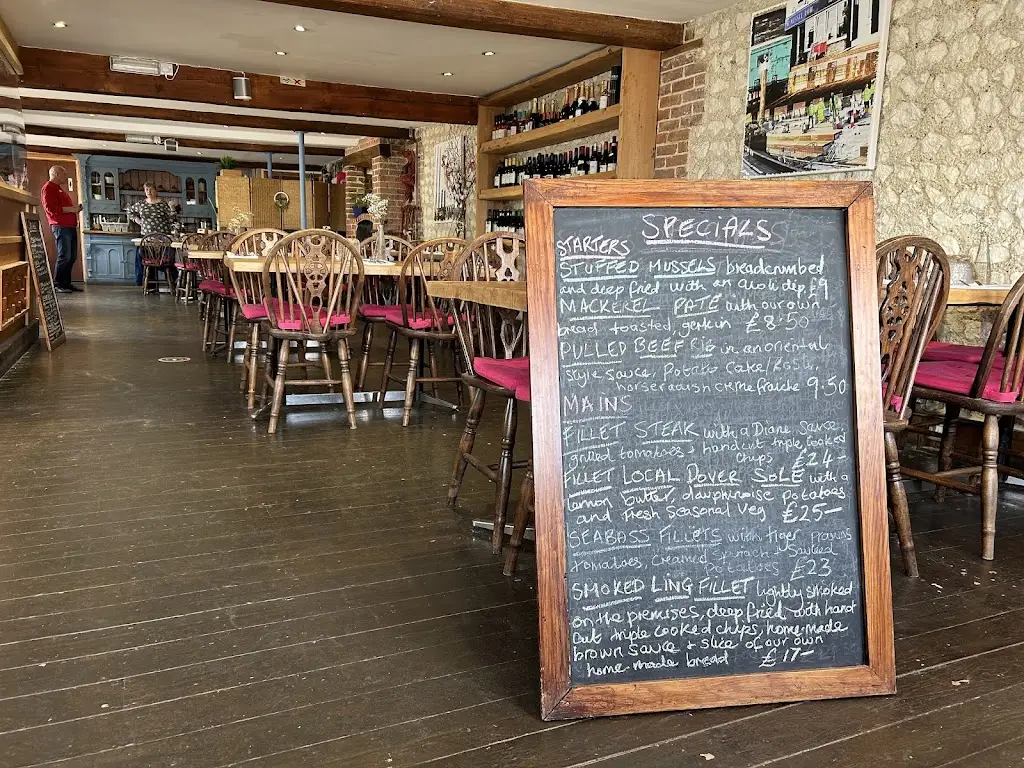 SPECIALS
STARTERS
STUFFED MUSSELS breadcrumbed
and deep fried with an aioli dip £9
MACKEREL PATE with our own
bread toasted, gerkin £8.50
PULLED BEEF RIB in an oriental
style sauce, potato cake/Rosti,
horseradish creme fraiche 9.50
MAINS
FILLET STEAK with a Diane Sauce,
grilled tomatoes + handcut triple cooked
chips £24-
FILLET LOCAL DOVER SOLE with a
lemon butter, dauphinoise potatoes
and Fresh Seasonal Veg £25-
SEABASS FILLETS with tiger Prawns
tomatoes, creamed spinach, Sauteed
potatoes £23
SMOKED LING FILLET lightly smoked
on the premises, deep fried with hand
cut triple cooked chips, home-made
brown sauce + slice of our own
home-made bread £17-